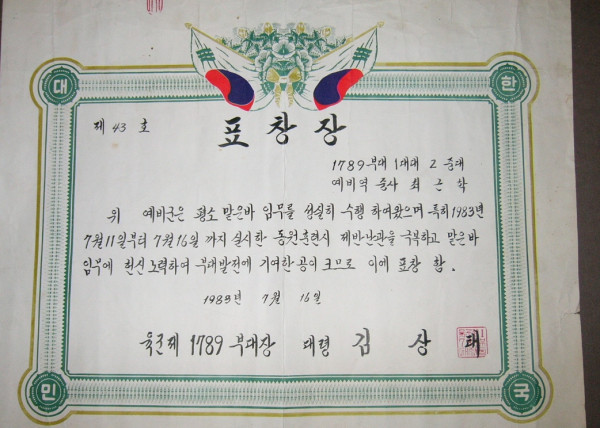 대 한
제 43 호
표 창 장
1789 부대 1대대 2 중대
예비역 중사 최 근 학
위 예비군은 평소 맡은바 임무를 성실히 수행 하여왔으며 특히 1983년
7월 11일부터 7월 16일 까지 실시한 동원훈련시 제반난관을 극복하고 맡은바
임무에 헌신 노력하여 부대발전에 기여한 공이 크므로 이에 표창 함.
1983년 7월 16일
육군제 1789 부대장 대령 김 상 태
민 국